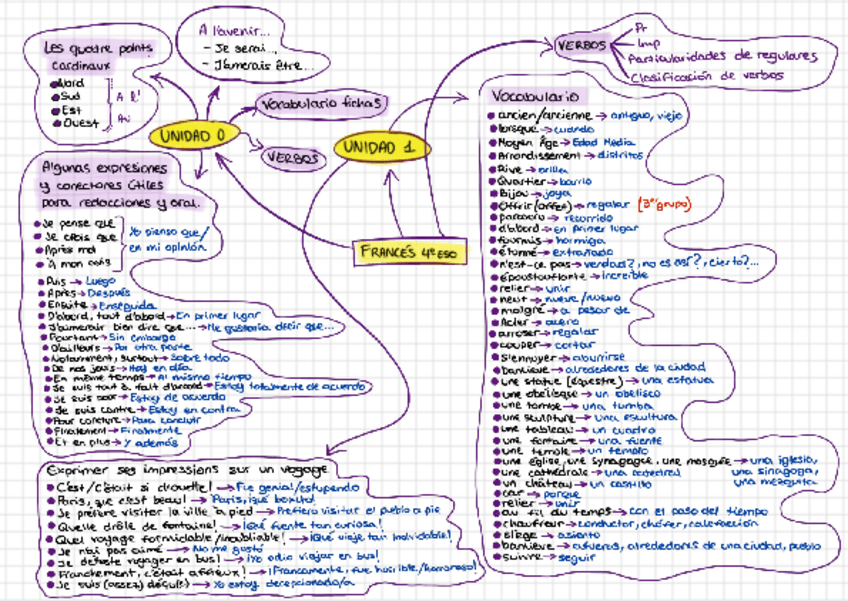 Les quatre points
cardinaux
Nord
Sud
Est
Ouest
A l'
Au
A l'avenir...
- Je serai...
- J'aimerais être...
UNIDAD 0
Vocabulario fichas
VERBOS
Algunas expresiones
y conectores útiles
para redacciones y oral.
Je pense que
Je crois que
Après moi
À mon avis
Yo pienso que/
en mi opinión
Puis → Luego
Après → Después
Ensuite → Enseguida
D'abord, tout d'abord → En primer lugar
J'aimerais bien dire que... → Me gustaría decir que...
Pourtant → Sin embargo
D'ailleurs → Por otra parte
Notamment, surtout → Sobre todo
De nos jours → Hoy en día
En même temps → Al mismo tiempo
Je suis tout à fait d'accord → Estoy totalmente de acuerdo
Je suis pour → Estoy de acuerdo
Je suis contre → Estoy en contra
Pour conclure → Para concluir
Finalement → Finalmente
Et en plus → Y además
Exprimer ses impressions sur un voyage
C'est/C'était si chouette! → Fue genial/estupendo
Paris, que c'est beau! → París, ¡qué bonito!
Je préfère visiter la ville à pied → Prefiero visitar el pueblo a pie
Quelle drôle de fontaine! → ¡Qué fuente tan curiosa!
Quel voyage formidable/inoubliable! → ¡Qué viaje tan inolvidable!
Je n'ai pas aimé → No me gustó
Je déteste voyager en bus! → ¡Yo odio viajar en bus!
Franchement, c'était affreux! → ¡Francamente, fue horrible/horroroso!
Je suis (assez) déçu(e) → Yo estoy decepcionado/a
FRANCÉS 4º ESO
UNIDAD 1
VERBOS
Pr
Imp
Particularidades de regulares
Clasificación de verbos
Vocabulario
ancien/ancienne → antiguo, viejo
lorsque → cuando
Moyen Âge → Edad Media
Arrondissement → distritos
Rive → orilla
Quartier → barrio
Bijou → joya
Offrir (offert) → regalar (3er grupo)
parcours → recorrido
d'abord → en primer lugar
fourmis → hormiga
étonné → extrañado
n'est-ce pas → verdad?, no es así?, cierto?...
époustouflante → increíble
relier → unir
neuf → nueve/nuevo
malgré → a pesar de
Acier → acero
arroser → regalar
couper → cortar
S'ennuyer → aburrirse
banlieue → alrededores de la ciudad
une statue (équestre) → una estatua
une obélisque → un obelisco
une tombe → una tumba
une sculpture → una escultura
une tableau → un cuadro
une fontaine → una fuente
une temple → un templo
une église, une synagogue, une mosquée → una iglesia,
una sinagoga,
una mezquita
une cathédrale → una catedral
un château → un castillo
car → porque
relier → unir
au fil du temps → con el paso del tiempo
chauffeur → conductor, chófer, calefacción
siège → asiento
banlieue → afueras, alrededores de una ciudad, pueblo
suivre → seguir